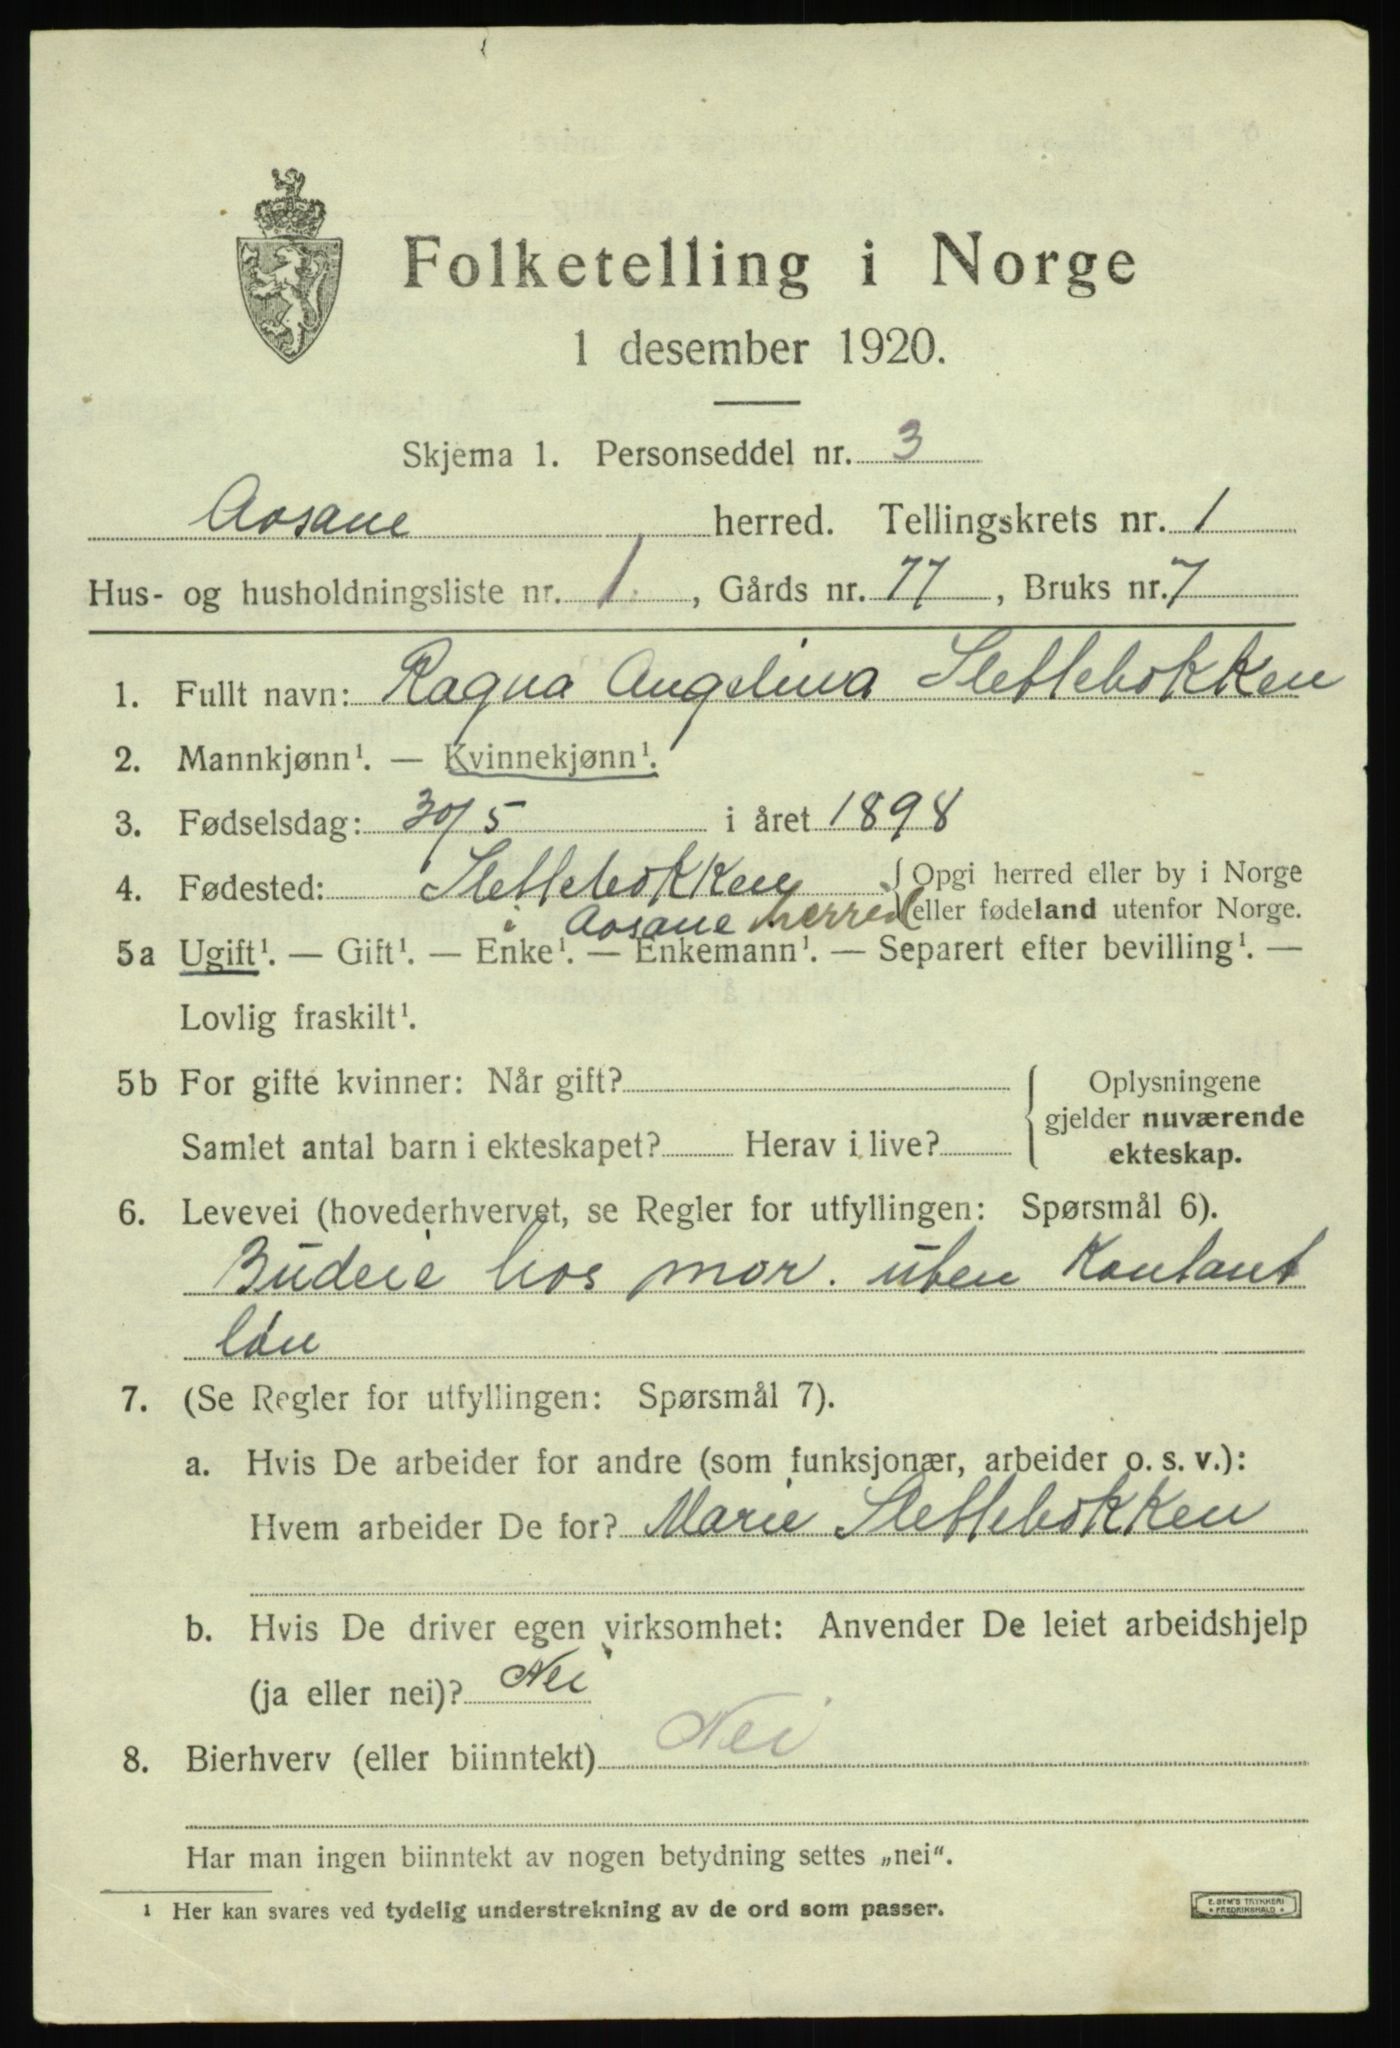 Folketelling i Norge
1 desember 1920.
Skjema 1. Personseddel nr. 3
Aasane herred. Tellingskrets nr. 1
Hus- og husholdningsliste nr. 1. , Gårds nr. 77 , Bruks nr. 7
1. Fullt navn: Ragna Angelina Slettebakken
2. Mannkjønn¹. — Kvinnekjønn¹.
3. Fødselsdag: 30/5 i året 1898
4. Fødested: Slettebakken { Opgi herred eller by i Norge
i Aasane herred eller fødeland utenfor Norge.
5a Ugift¹. — Gift¹. — Enke¹. — Enkemann¹. — Separert efter bevilling¹. —
Lovlig fraskilt¹.
5b For gifte kvinner: Når gift? { Oplysningene
gjelder nuværende
Samlet antal barn i ekteskapet? Herav i live? ekteskap.
6. Levevei (hovederhvervet, se Regler for utfyllingen: Spørsmål 6).
Budeie hos mor. uten Kontant
løn
7. (Se Regler for utfyllingen: Spørsmål 7).
a. Hvis De arbeider for andre (som funksjonær, arbeider o. s. v.):
Hvem arbeider De for? Marie Slettebakken
b. Hvis De driver egen virksomhet: Anvender De leiet arbeidshjelp
(ja eller nei)? Nei
8. Bierhverv (eller biinntekt) Nei
Har man ingen biinntekt av nogen betydning settes „nei“.
¹ Her kan svares ved tydelig understrekning av de ord som passer.
E. SEM'S TRYKKERI
* FREDRIKSHALD *